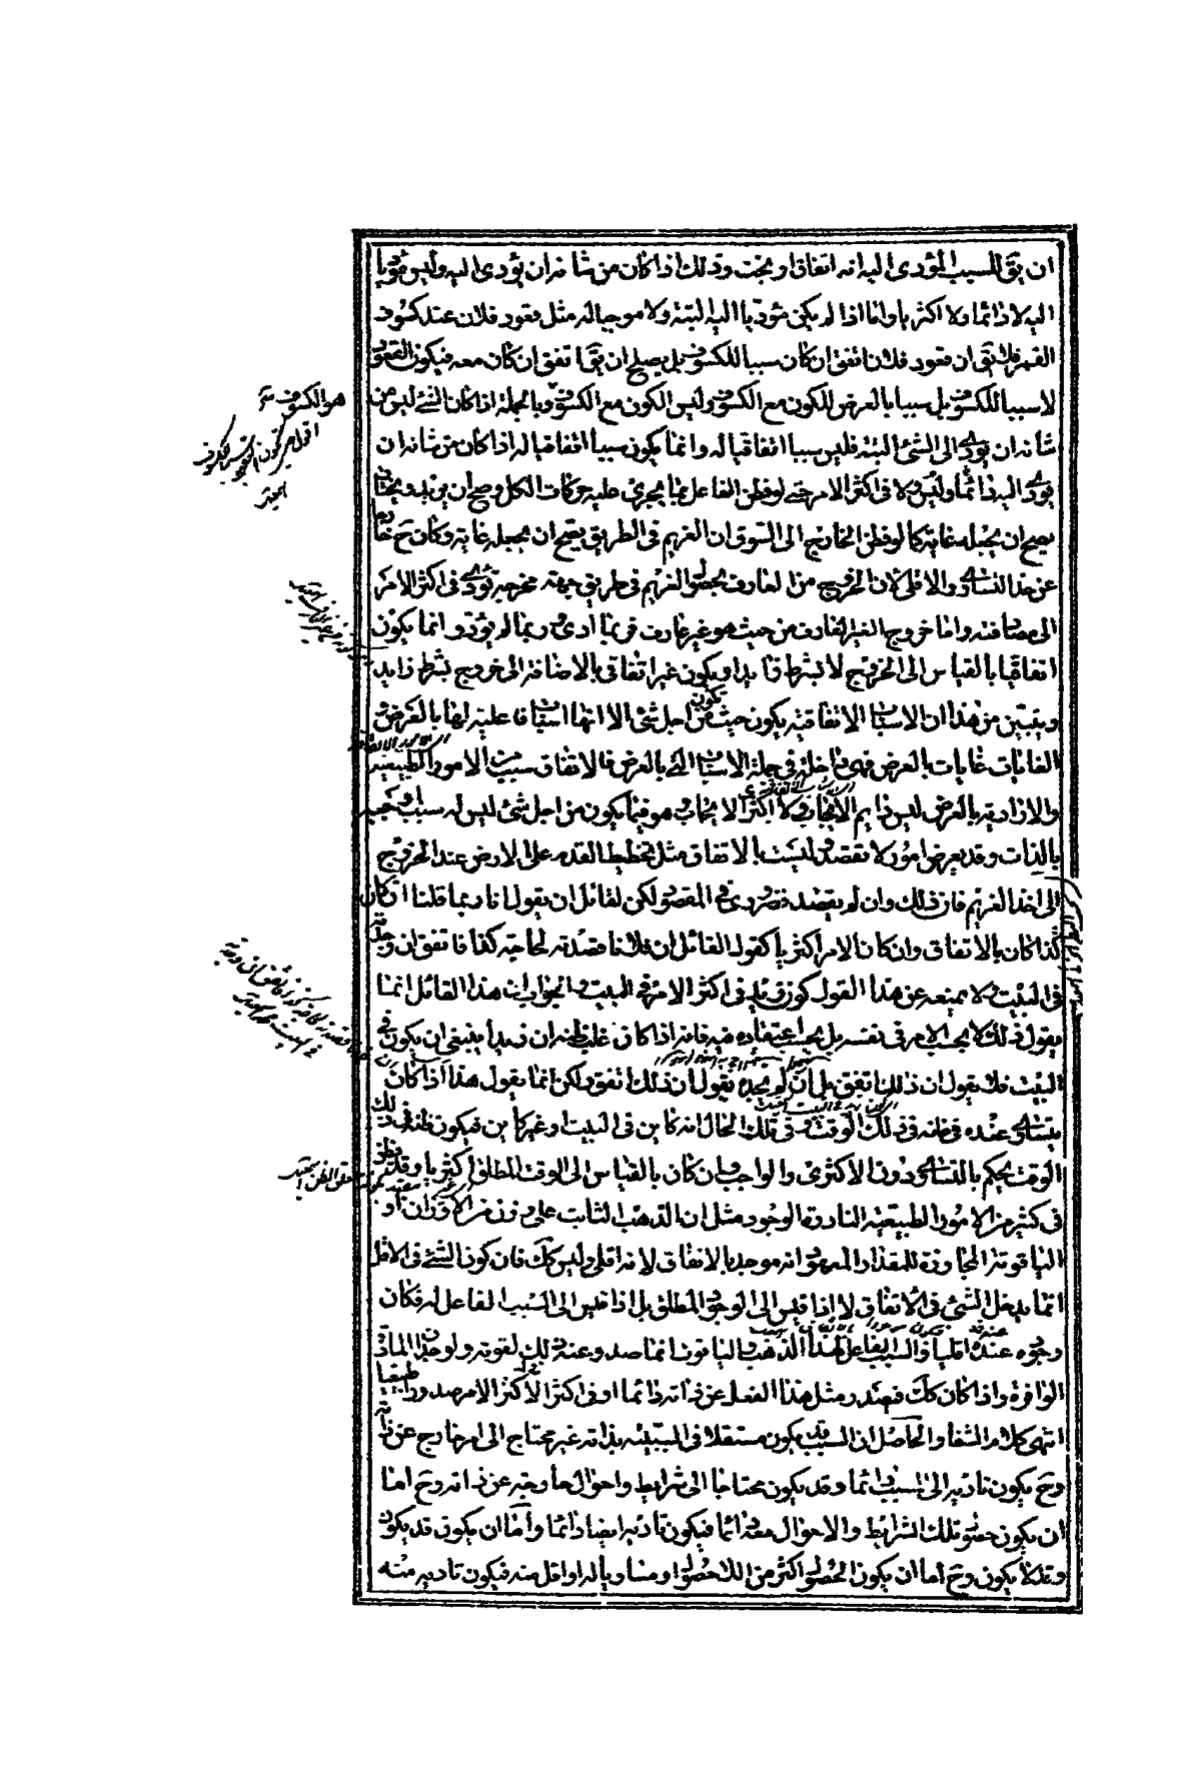 ان يق للسبب المؤدى اليه انه اتفاق او بخت وذلك اذا كان من شانه ان يؤدى اليه وليس مؤديا
اليه لا دائما ولا اكثريا واما اذا لم يكن مؤديا اليه البتة ولا موجبا له مثل قعود فلان عند كسوف
القمر فلا يق ان قعود فلان اتفق ان كان سببا للكسوف بل يصلح ان يق اتفق ان كان معه فيكون القعود
لا سببا للكسوف بل سببا بالعرض للكون مع الكسوف وليس الكون مع الكسوف وبالجملة اذا كان الشئ ليس من
شانه ان يؤدى الى الشئ البتة فليس سببا اتفاقيا له وانما يكون سببا اتفاقيا له اذا كان من شانه ان
يؤدى اليه دائما وليس ولا فى اكثر الامر حتى لو فطن الفاعل بما يجرى عليه حركات الكل وصح ان يريد ويختار
يصح ان يجعله غاية كما لو فطن الخارج الى السوق ان الغريم فى الطريق يصح ان يجعله غاية وكان ح خارجا
عن حد التساوى والاقلى لان الخروج من العارف بحصول الغريم فى طريق جهة مخرجه يؤدى فى اكثر الامر
الى مصادفته واما خروج الغير العارف من حيث هو غير عارف فربما ادى وربما لم يؤد وانما يكون
اتفاقيا بالقياس الى الخروج لا بشرط زايد ويكون غير اتفاقى بالاضافة الى خروج بشرط زايد
ويتبين من هذا ان الاسباب الاتفاقية يكون حيث يكون من اجل شئ الا انها اسباب فاعلية لها بالعرض
الغايات غايات بالعرض فهى داخلة فى جملة الاسباب التى بالعرض فالاتفاق سبب الامور الطبيعية
والارادية بالعرض ليس دايم الايجاب ولا اكثر الايجاب وهو فيما يكون من اجل شئ ليس له سبب اوجبه
بالذات وقد يعرض امور لا بقصد وليست بالاتفاق مثل تخطيط القدم على الارض عند الخروج
الى اخذ الغريم فان ذلك وان لم يقصد فضرورى فى المقصود لكن لقائل ان يقول انا ربما قلنا ان كان
كذا كان بالاتفاق وان كان الامر اكثريا كقول القائل ان فلانا قصدته لحاجة كذا فاتفق ان وجدته
فى البيت ولا يمنعه عن هذا القول كون زيد فى اكثر الامر فى البيت والجواب ان هذا القائل انما
يقول ذلك لا بحسب الامر فى نفسه بل بحسب اعتقاده فيه فانه اذا كان غلب ظنه ان زيدا ينبغى ان يكون فى
البيت فلا يقول ان ذلك اتفق بل ان لو لم يجده يقول ان ذلك اتفق ولكن انما يقول هذا اذا كان
يتساوى عنده فى ظنه فى ذلك الوقت وفى تلك الحال انه كاين فى البيت او غير كاين فيكون ظنه فى ذلك
الوقت يحكم بالتساوى دون الاكثرى والواجب وان كان بالقياس الى الوقت المطلق اكثريا وقد يظن
فى كثير من الامور الطبيعية النادرة الوجود مثل ان الذهب النابت على وزن من الاوزان او
الياقوتة المجاوزة للمقدار المعهود انه موجد بالاتفاق لانه اقلى وليس كك فان كون الشئ فى الاقل
انما يدخل الشئ فى الاتفاق لا اذا قيس الى الوجود المطلق بل اذا قيس الى السبب الفاعل له فكان
وجوده عنده اقليا والسبب الفاعل لهذا الذهب والياقوت انما صدر عنه ذلك لقوته ولوجدان المادة
الوافرة واذا كان كك فيصدر مثل هذا الفعل عن ذاته دائما او فى اكثر الامر صدورا طبيعيا
انتهى كلام الشفا والحاصل ان السبب قد يكون مستقلا فى السببية بذاته غير محتاج الى امر خارج عن ذاته
وح يكون تاديه الى المسبب دائما وقد يكون محتاجا الى شرايط واحوال خارجة عن ذاته وح اما
ان يكون حصول تلك الشرايط والاحوال معه دائما فيكون تاديه ايضا دائما واما ان يكون قد يكون
وقد لا يكون وح اما ان يكون الحصول اكثر من اللاحصول او مساويا له او اقل منه فيكون تاديه منه